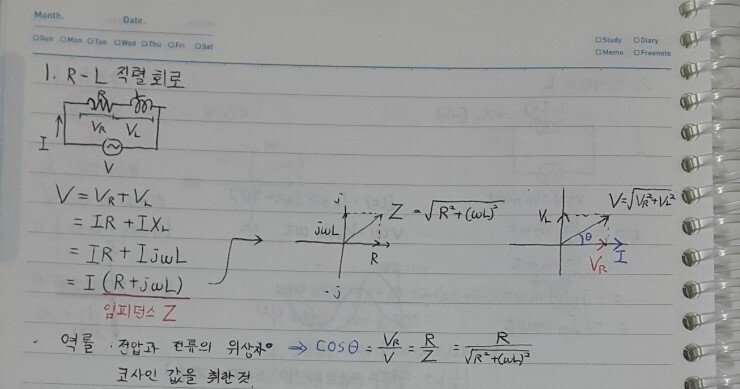 Month. Date.
□Sun □Mon □Tue □Wed □Thu □Fri □Sat
□Study □Diary
□Memo □Freenote
1. R-L 직렬회로
R L
V_R V_L
I
V
V = V_R + V_L
= IR + IX_L
= IR + IjωL
= I (R+jωL)
임피던스 Z
j
jωL
Z = √(R²+(ωL)²)
R
-j
V_L
V=√(V_R²+V_L²)
θ
V_R
I
· 역률 : 전압과 전류의 위상차의 ⇒ cosθ = V_R/V = R/Z = R/√(R²+(ωL)²)
코사인 값을 취한것